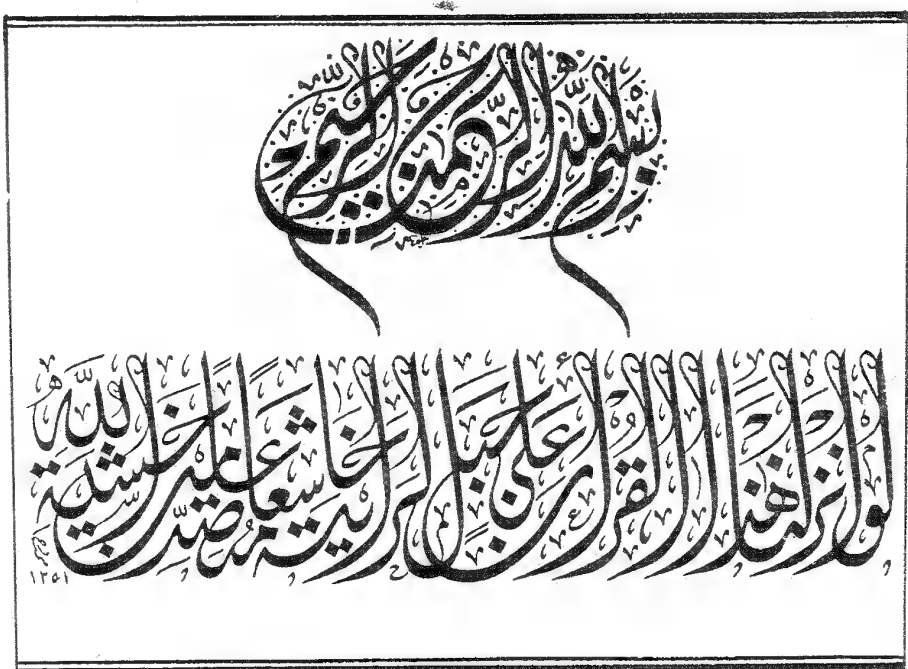 بسم الله الرحمن الرحيم
لو أنزلنا هذا القرآن على جبل لرأيته خاشعا متصدعا من خشية الله
١٣٥١